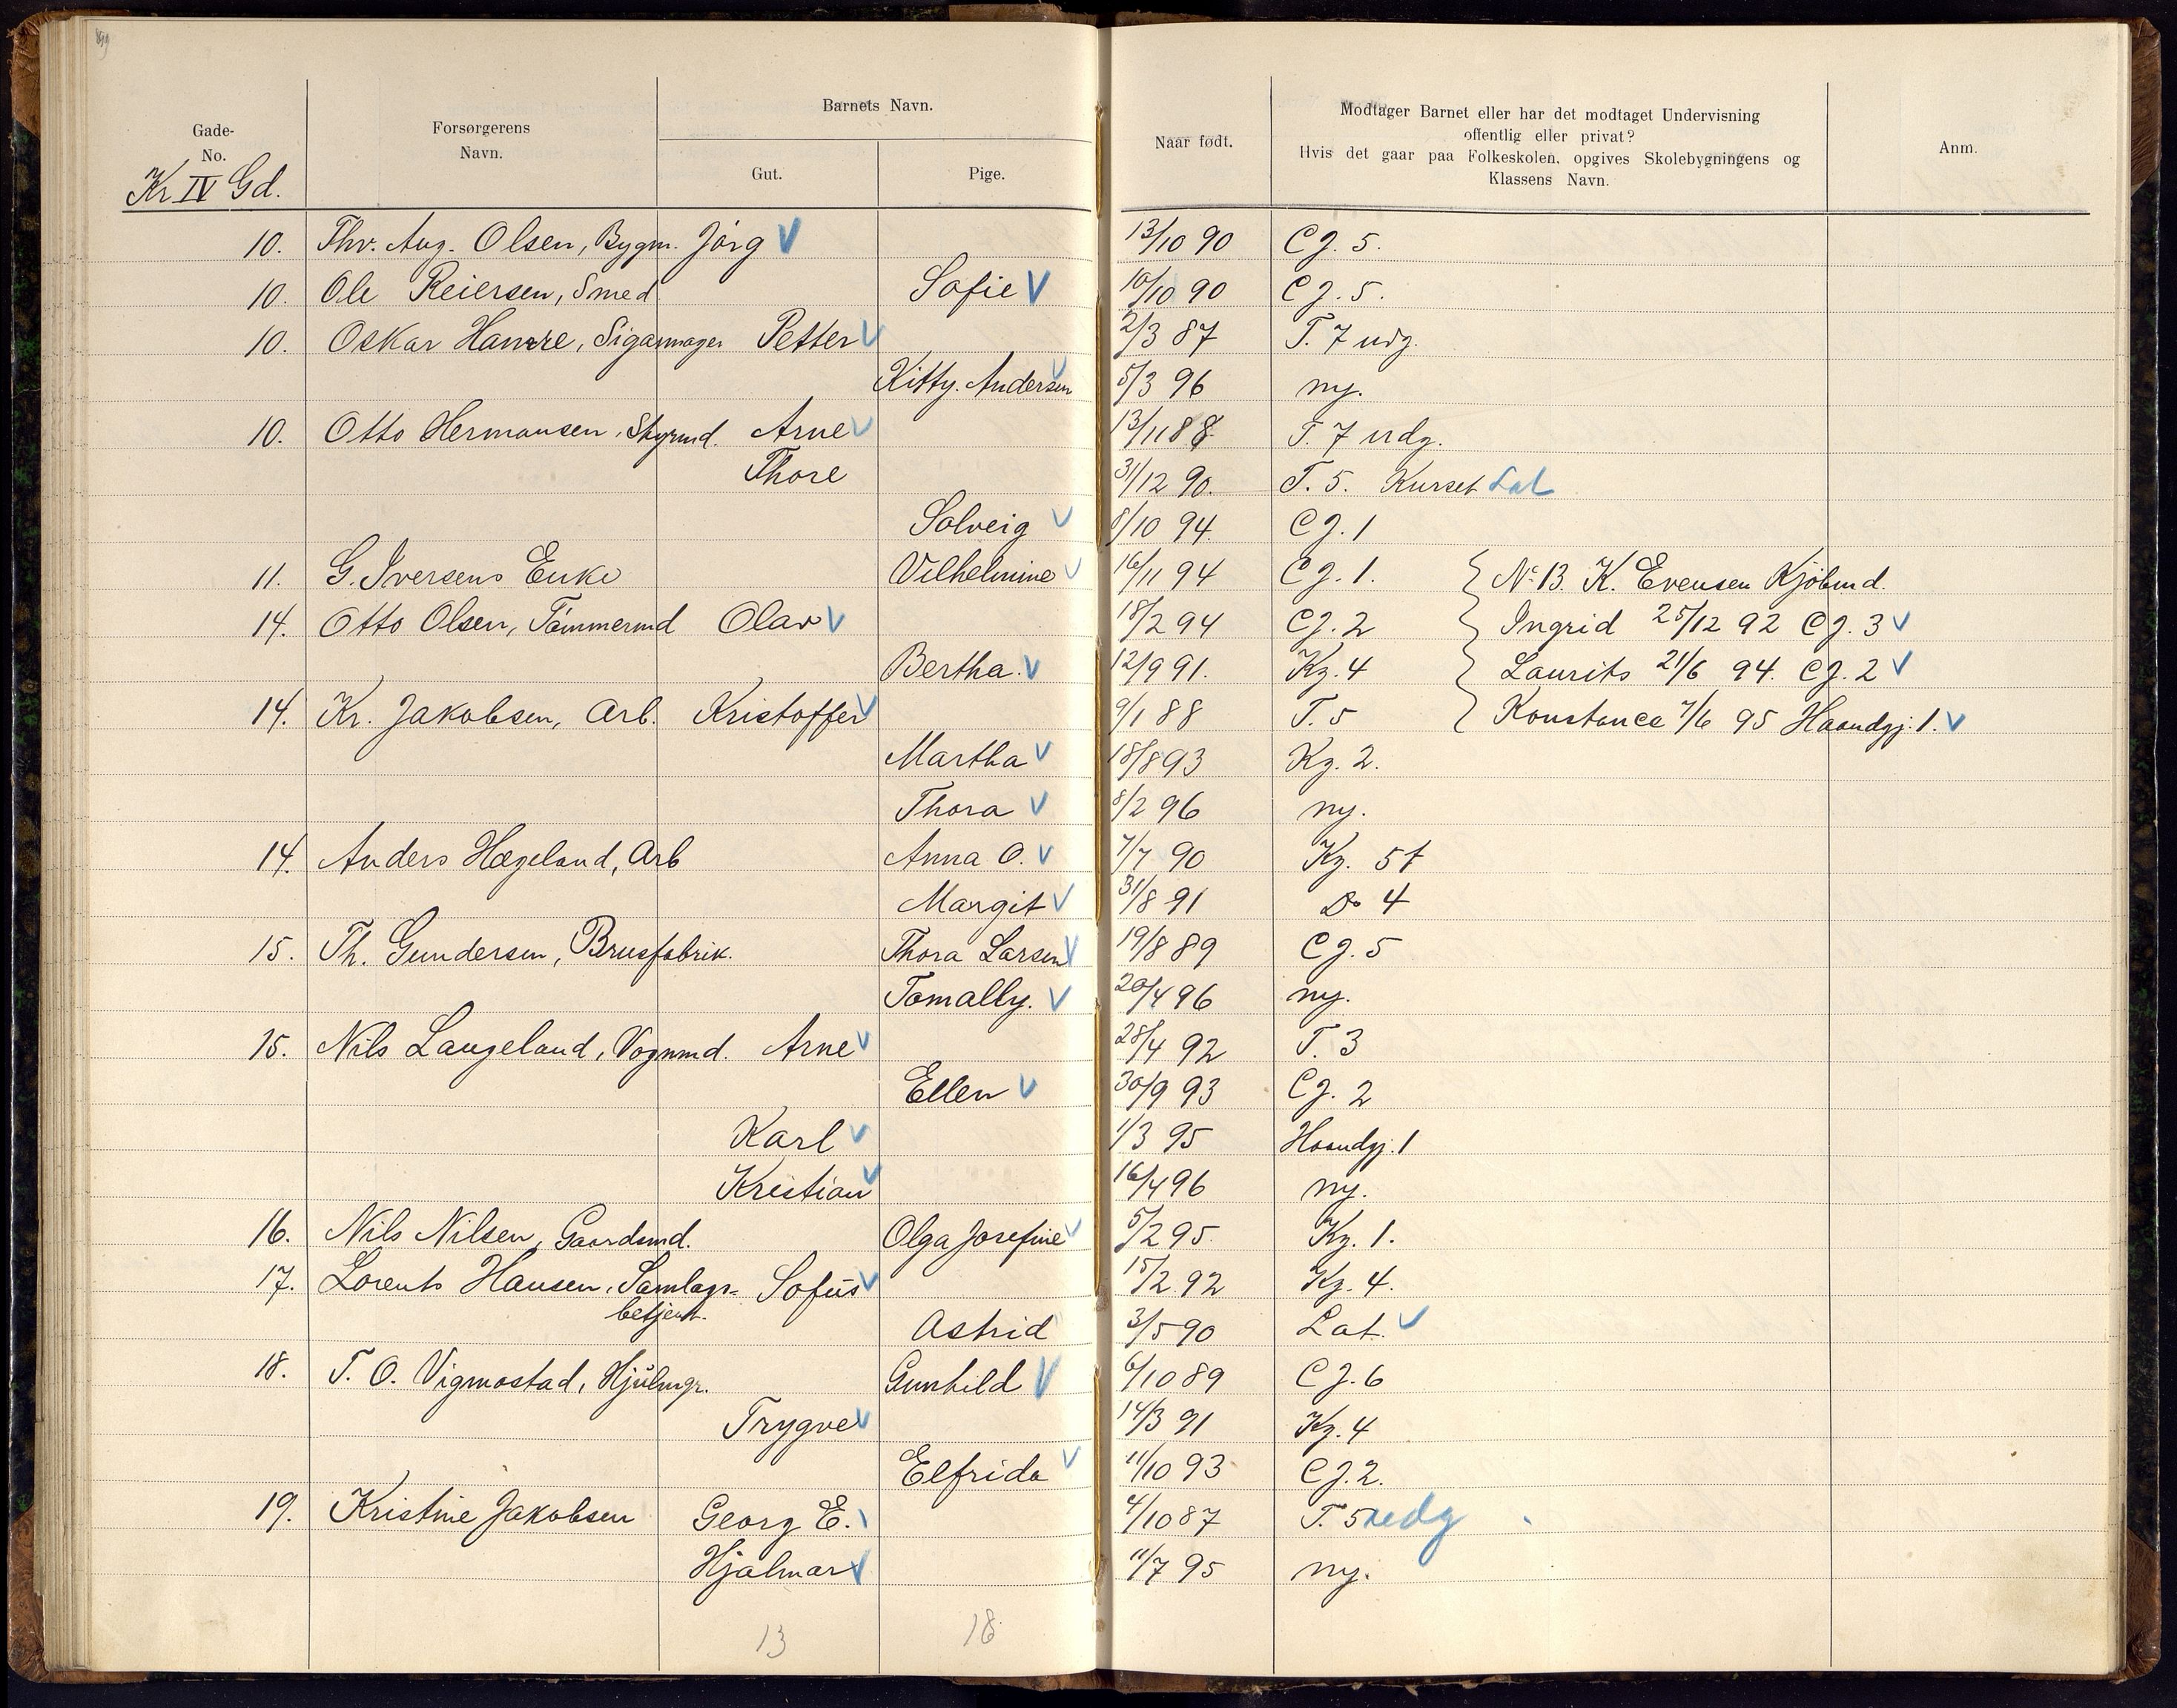 Gade-
No.
Kr IV Gd.
Forsørgerens
Navn.
Barnets Navn.
Gut.
Pige.
Naar født.
Modtager Barnet eller har det modtaget Undervisning
offentlig eller privat?
Hvis det gaar paa Folkeskolen, opgives Skolebygningens og
Klassens Navn.
Anm.
10. Thv. Aug. Olsen, Bygm. Jörg V 13/10 90 CJ. 5.
10. Ole Reiersen, Smed Sofie V 10/10 90 CJ. 5.
10. Oskar Hamre, Sigarmager Petter V 2/3 87 T. 7 udg.
Kitty. Andersen V 5/3 96 ny.
10. Otto Hermansen, Styrmd. Arne V 13/11 88 T. 7 udg.
Thore 31/12 90. T. 5. Kurset Lat
Solveig V 8/10 94. CJ. 1
11. G. Iversens Enke Vilhelmine V 16/11 94 CJ. 1. No 13. K. Evensen Kjöbmd.
14. Otto Olsen, Tömmermd Olav V 18/2 94 CJ. 2 Ingrid 25/12 92 CJ. 3 V
Bertha. V 12/9 91. Kg. 4 Laurits 21/6 94. CJ. 2 V
14. Kr. Jakobsen, Arb. Kristoffer V 9/1 88 T. 5 Konstance 7/6 95 Haandgj. 1. V
Martha V 18/8 93 Kg. 2.
Thora V 8/2 96 ny.
14. Anders Hægeland, Arb Anna O. V 7/7 90 Kg. 5t
Margit V 31/8 91 Do 4
15. Th. Gundersen, Brusfabrik. Thora Larsen V 19/8 89 CJ. 5
Tomally. V 20/4 96 ny.
15. Nils Langeland, Vognmd. Arne V 28/4 92 T. 3
Ellen V 30/9 93 CJ. 2
Karl V 1/3 95 Haandgj. 1
Kristian V 16/4 96 ny.
16. Nils Nilsen, Gaardsmd. Olga Josefine V 5/2 95. Kg. 1.
17. Lorents Hansen, Samlags- Sofus V 15/2 92 Kg. 4.
betjent.
Astrid 3/5 90 Lat. V
18. T. O. Vigmostad, Hjulmgr. Gunhild V 6/10 89 CJ. 6
Trygve V 14/3 91 Kg. 4
Elfrida V 11/10 93 CJ. 2.
19. Kristine Jakobsen Georg E. 4/10 87 T. 5 udg
Hjalmar V 11/7 95 ny.
13 18